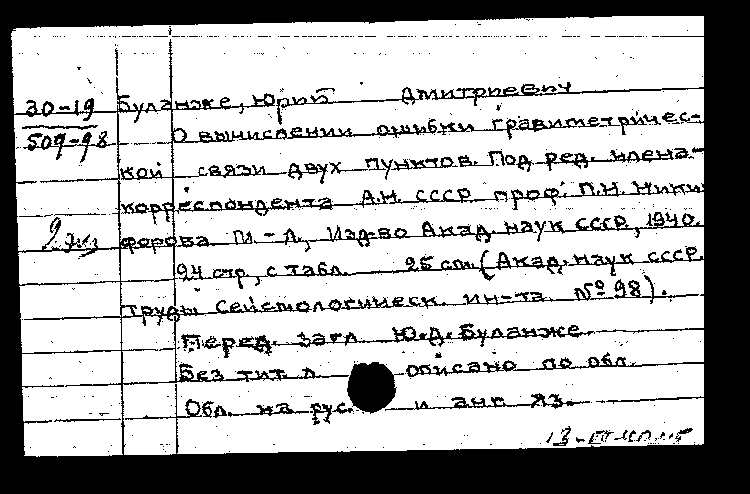 30-19 Буланже, Юрий Дмитриевич
509-98 О вычислении ошибки гравиметричес-
кой связи двух пунктов. Под ред. члена-
корреспондента А.Н. СССР проф. П.Н. Ники
2 экз форова М.-Л., Изд-во Акад. наук СССР, 1940.
24 стр, с табл. 25 см. (Акад. наук СССР.
труды Сейсмологическ. ин-та № 98).
Перед. загл. Ю.Д. Буланже.
Без тит л. описано по обл.
Обл. на рус. и анг яз.